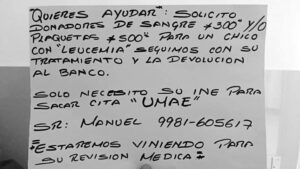 QUIERES AYUDAR: SOLICITO
DONADORES DE SANGRE $300 Y/O
PLAQUETAS $500 PARA UN CHICO
CON "LEUCEMIA" SEGUIMOS CON SU
TRATAMIENTO Y LA DEVOLUCION
AL BANCO.
SOLO NECESITO SU INE PARA
SACAR CITA "UMAE"
SR: MANUEL 9981-605617
*ESTAREMOS VINIENDO PARA
SU REVISION MEDICA*